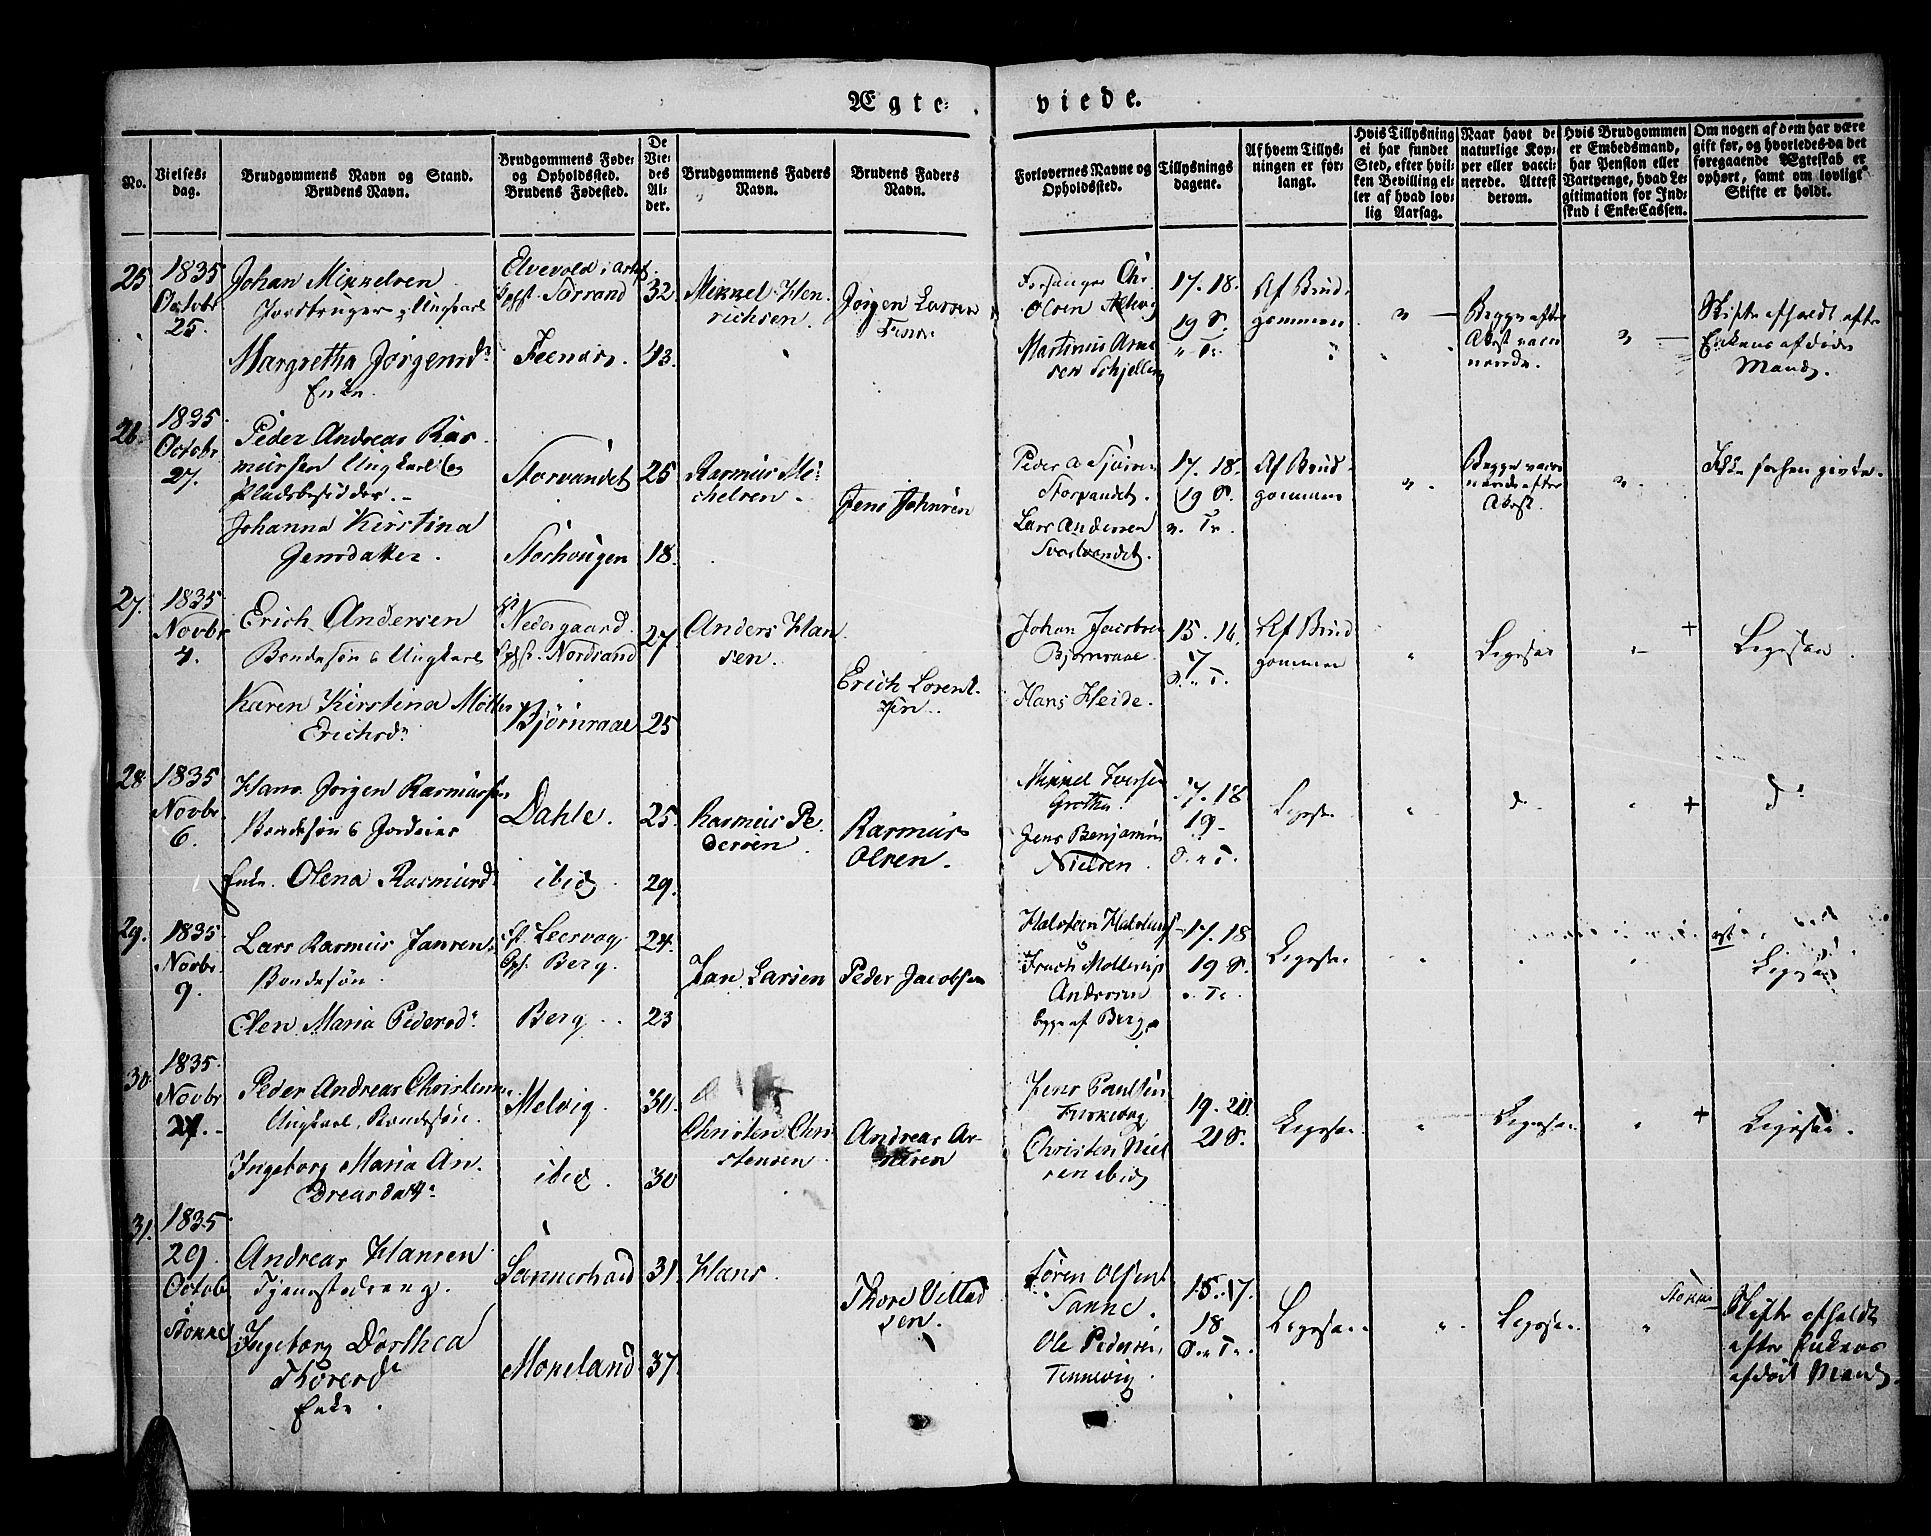 Ægte viede.
No.
Vielses-dag.
Brudgommens Navn og Stand.
Brudens Navn.
Brudgommens Føde-
og Opholdssted.
Brudens Fødested.
De
Vie-
des
Al-
der.
Brudgommens Faders
Navn.
Brudens Faders
Navn.
Forlovernes Navne og
Opholdssted.
Tillysnings
dagene.
Af hvem Tillys-
ningen er for-
langt.
Hvis Tillysning
ei har fundet
Sted, efter hvil-
ken Bevilling el-
ler af hvad lov-
lig Aarsag.
Naar havt de
naturlige Kop-
per eller vacci-
nerede. Attest
derom.
Hvis Brudgommen
er Embedsmand,
har Pension eller
Vartpenge, hvad Le-
gitimation for Ind-
skud i Enke-Cassen.
Om nogen af dem har være
gift før, og hvorledes da det
foregaaende Ægteskab er
ophørt, samt om lovligt
Skifte er holdt.
25
1835
Octobr
25.
Johan Mikkelsen
Margretha Jørgensd.
Enke.
Elvevold i
32
43.
Mikkel Hen-
richsen.
Jørgen Larsen
Olsen
Martinus Arne
sen Schjelling
17. 18.
19 S.
" Tr.
Af Brud-
gommen
Begge efter
Attest vacci
nerede.
Skifte afholdt efter
Enkens afdøde
Mand.
26.
1835
Octobr
27.
Peder Andreas Ras-
mussen Ungkarl og
Pladsbesidder.
Johanna Kirstina
Jensdatter.
Storvandet
Storhougen
25
18.
Rasmus Mi-
chelsen.
Jens Johnsen
Storvandet.
Lars Andersen
17. 18.
19 S.
" Tr.
Af Brud-
gommen
Begge vacci
nerede efter
Attest.
Ikke forhen givte.
27.
1835
Novbr
4.
Erich Andersen
Bondesøn & Ungkarl
Karen Kirstina Møller
Erichsd.
Nedergaard.
Opst. Nordsand
Bjørnraae
27
25
Anders Han
sen.
Erich Lorent-
zen.
Johan Jacobsen
Bjørnraae.
Hans Heide.
15. 16.
17
S. " T.
Af Brud
gommen
Ligesaa
+
Ligesaa.
28.
1835
Novbr
6.
Hans Jørgen Rasmussen
Bondesøn & Jordeier
Enke. Olena Rasmusd.
Dahle.
ibid.
25.
29.
Rasmus Pe-
dersen.
Rasmus
Olsen.
Mikkel Iversen
Jens Benjamin
Nielsen.
17. 18
19-
S. " T.
Ligesaa
d.
+
do
29.
1835
Novbr
9.
Lars Rasmus Jansen.
Bondesøn.
Elen Maria Pedersd.
Leervog
Opst. Berg.
Berg.
24.
23
Jan Larsen
Peder Jacobsen
Andersen
begge af Berg.
17. 18
19 S.
" Tr.
Ligesaa
Ligesaa
30
1835.
Novbr
27.
Peder Andreas Christensen
Ungkarl, Bondesøn.
Ingeborg Maria An-
dreasdatt.
Melvig.
ibid.
30.
30
Christen Chri-
stensen
Andreas Ar-
Jens Paulsen
Christen Niel
sen ibid
19. 20.
21 S.
Ligesaa
Ligesaa
+
Ligesaa.
31.
1835
29.
Octob
Stokke
Andreas Hansen
Tjenestedreng.
Ingeborg Dorthea
Thoresd.
Enke.
Sannerhard
Mokeland
31.
37.
Hans.
Thore Villad
sen.
Søren Olsen
Sanne.
Ole Pedersen,
Tennevig.
15. 17.
18
S. " Tr.
Ligesaa
Ligesaa
Stokke
Skifte afholdt
efter Enkens
afdød Mand.